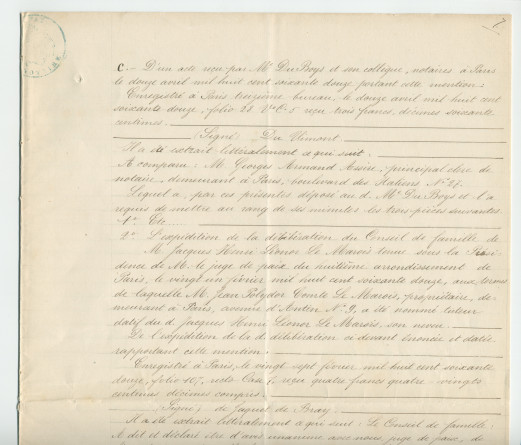 7
C. — D'un acte reçu par Me DuBoys et son collègue, notaires à Paris
le douze avril mil huit cent soixante douze, portant cette mention:
Enregistré à Paris treizième bureau, le douze avril mil huit cent
soixante douze, folio 20 Vo C. 5 reçu trois francs, décimes soixante
centimes.
(Signé: Du
Il a été extrait littéralement a qui suit.
A comparu: M. Georges Armand principal clerc de
notaire, demeurant à Paris, boulevard des Italiens No 27.
Lequel a, par ces présentes déposé au d. Me DuBoys et l'a
requis de mettre au rang de ses minutes les trois pièces suivantes
1o Etc
2o L'expédition de la délibération du Conseil de famille de
M. Jacques Henri Léonor Le Marois tenue sous la Prési-
dence de M. le juge de paix du huitième arrondissement de
Paris, le vingt un février mil huit cent soixante douze, aux termes
de laquelle M. Jean Polydor Comte Le Marois, propriétaire, de-
meurant à Paris, avenue d'Antin No 9, a été nommé tuteur
datif du d. Jacques Henri Léonor Le Marois, son neveu.
De l'expédition de la d. délibération ci devant énoncée et datée
rapportant cette mention:
Enregistré à Paris, le vingt sept février mil huit cent soixante
douze, folio 107, recto Case 7, reçu quatre francs quatre-vingts
centimes décimes compris.
Signé: de Faguet de Bray.
Il a été extrait littéralement a qui suit: Le Conseil de famille:
A dit et déclaré être d'avis unanime avec nous juge de paix, de